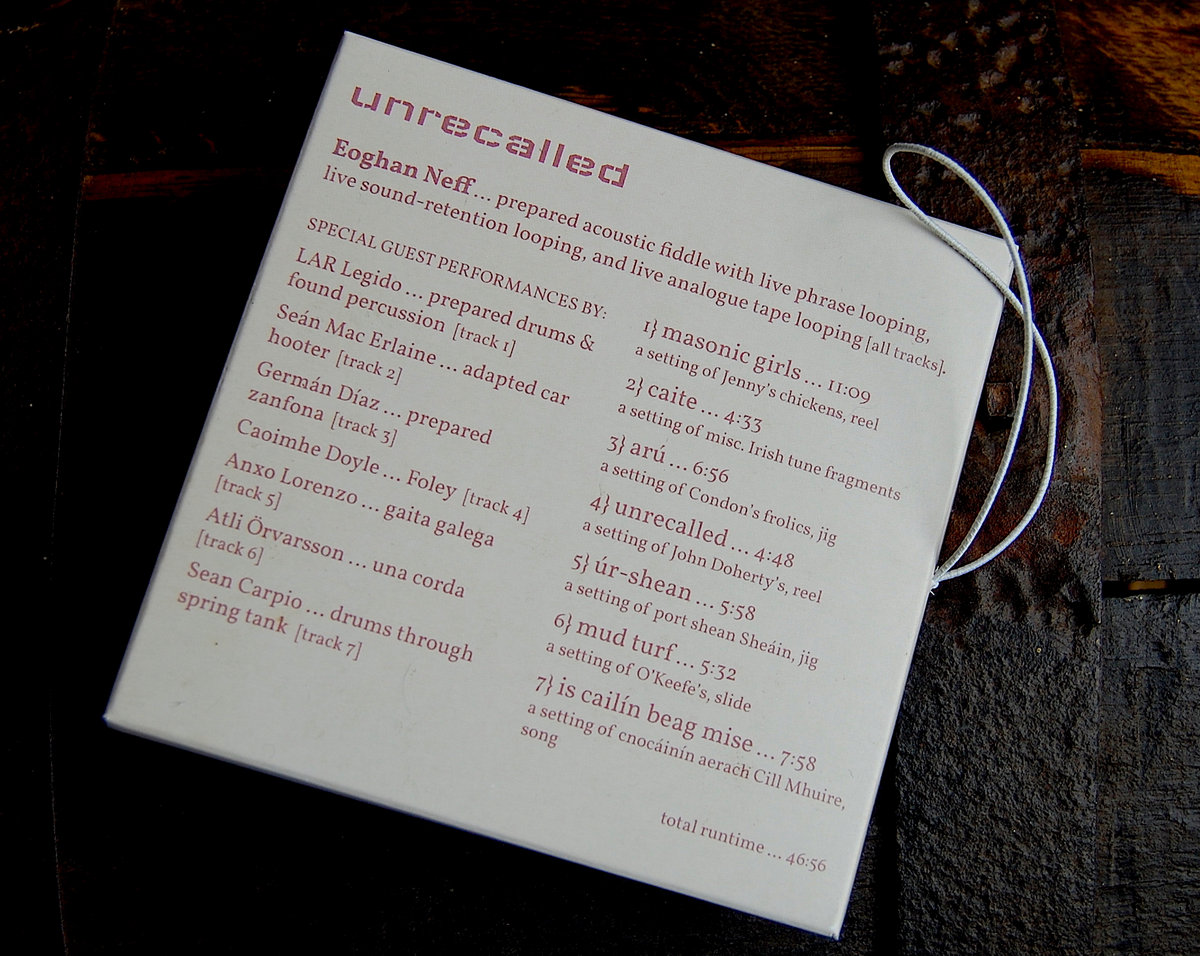 unrecalled
Eoghan Neff... prepared acoustic fiddle with live phrase looping,
live sound-retention looping, and live analogue tape looping [all tracks].
SPECIAL GUEST PERFORMANCES BY:
LAR Legido ... prepared drums &
found percussion [track 1]
Seán Mac Erlaine ... adapted car
hooter [track 2]
Germán Díaz ... prepared
zanfona [track 3]
Caoimhe Doyle ... Foley [track 4]
Anxo Lorenzo ... gaita galega
[track 5]
Atli Örvarsson ... una corda
[track 6]
Sean Carpio ... drums through
spring tank [track 7]
1} masonic girls ... 11:09
a setting of Jenny's chickens, reel
2} caite ... 4:33
a setting of misc. Irish tune fragments
3} arú ... 6:56
a setting of Condon's frolics, jig
4} unrecalled ... 4:48
a setting of John Doherty's, reel
5} úr-shean ... 5:58
a setting of port shean Sheáin, jig
6} mud turf ... 5:32
a setting of O'Keefe's, slide
7} is cailín beag mise ... 7:58
a setting of cnocáinín aerach Cill Mhuire,
song
total runtime ... 46:56